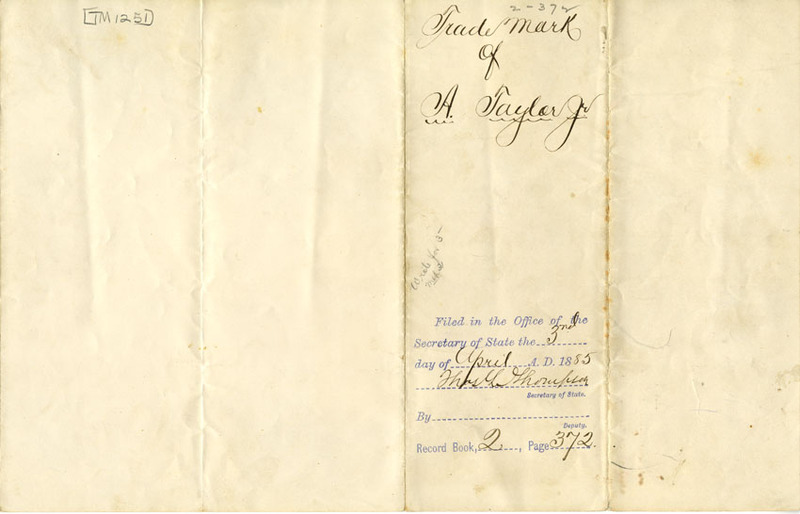 [TM1251]
2-372
Trade Mark
of
A. Taylor Jr
Wrote for 3-
Filed in the Office of the
Secretary of State the 3rd
day of April A. D. 1885
Thos L Thompson
Secretary of State.
By
Deputy.
Record Book, 2, Page 372.